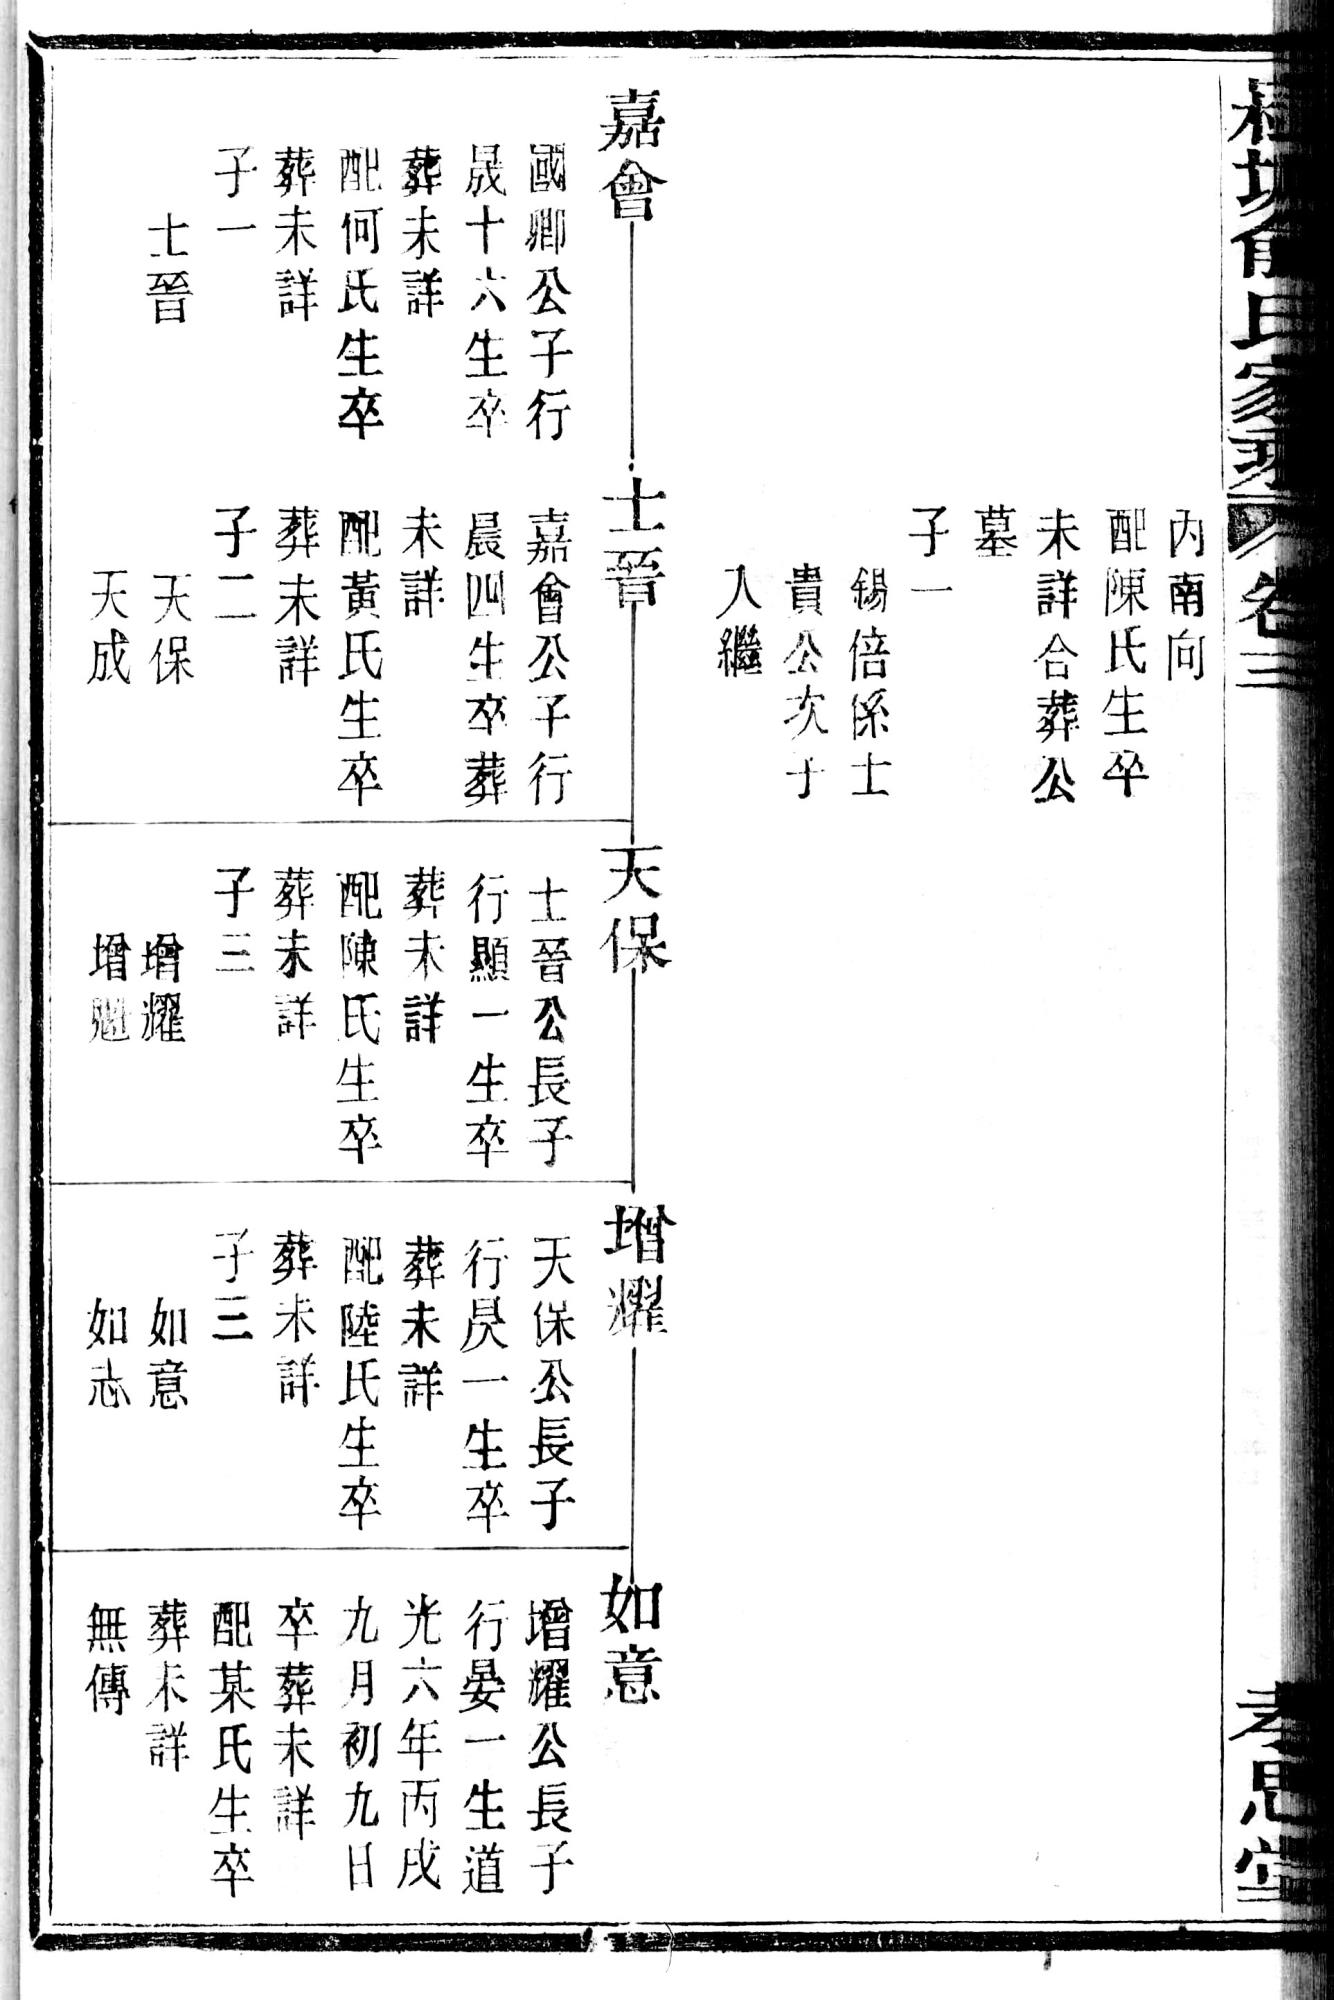 俞氏家乘
卷三
孝思堂
內南向
配陳氏生卒
未詳合葬公
墓
子一
錫倍係士
貴公次子
入繼
嘉會
國卿公子行
晟十六生卒
葬未詳
配何氏生卒
葬未詳
子一
士晉
士晉
嘉會公子行
晨四生卒葬
未詳
配黃氏生卒
葬未詳
子二
天保
天成
天保
士晉公長子
行顯一生卒
葬未詳
配陳氏生卒
葬未詳
子三
增耀
增
增耀
天保公長子
行昃一生卒
葬未詳
配陸氏生卒
葬未詳
子三
如意
如志
如意
增耀公長子
行晏一生道
光六年丙戌
九月初九日
卒葬未詳
配某氏生卒
葬未詳
無傳